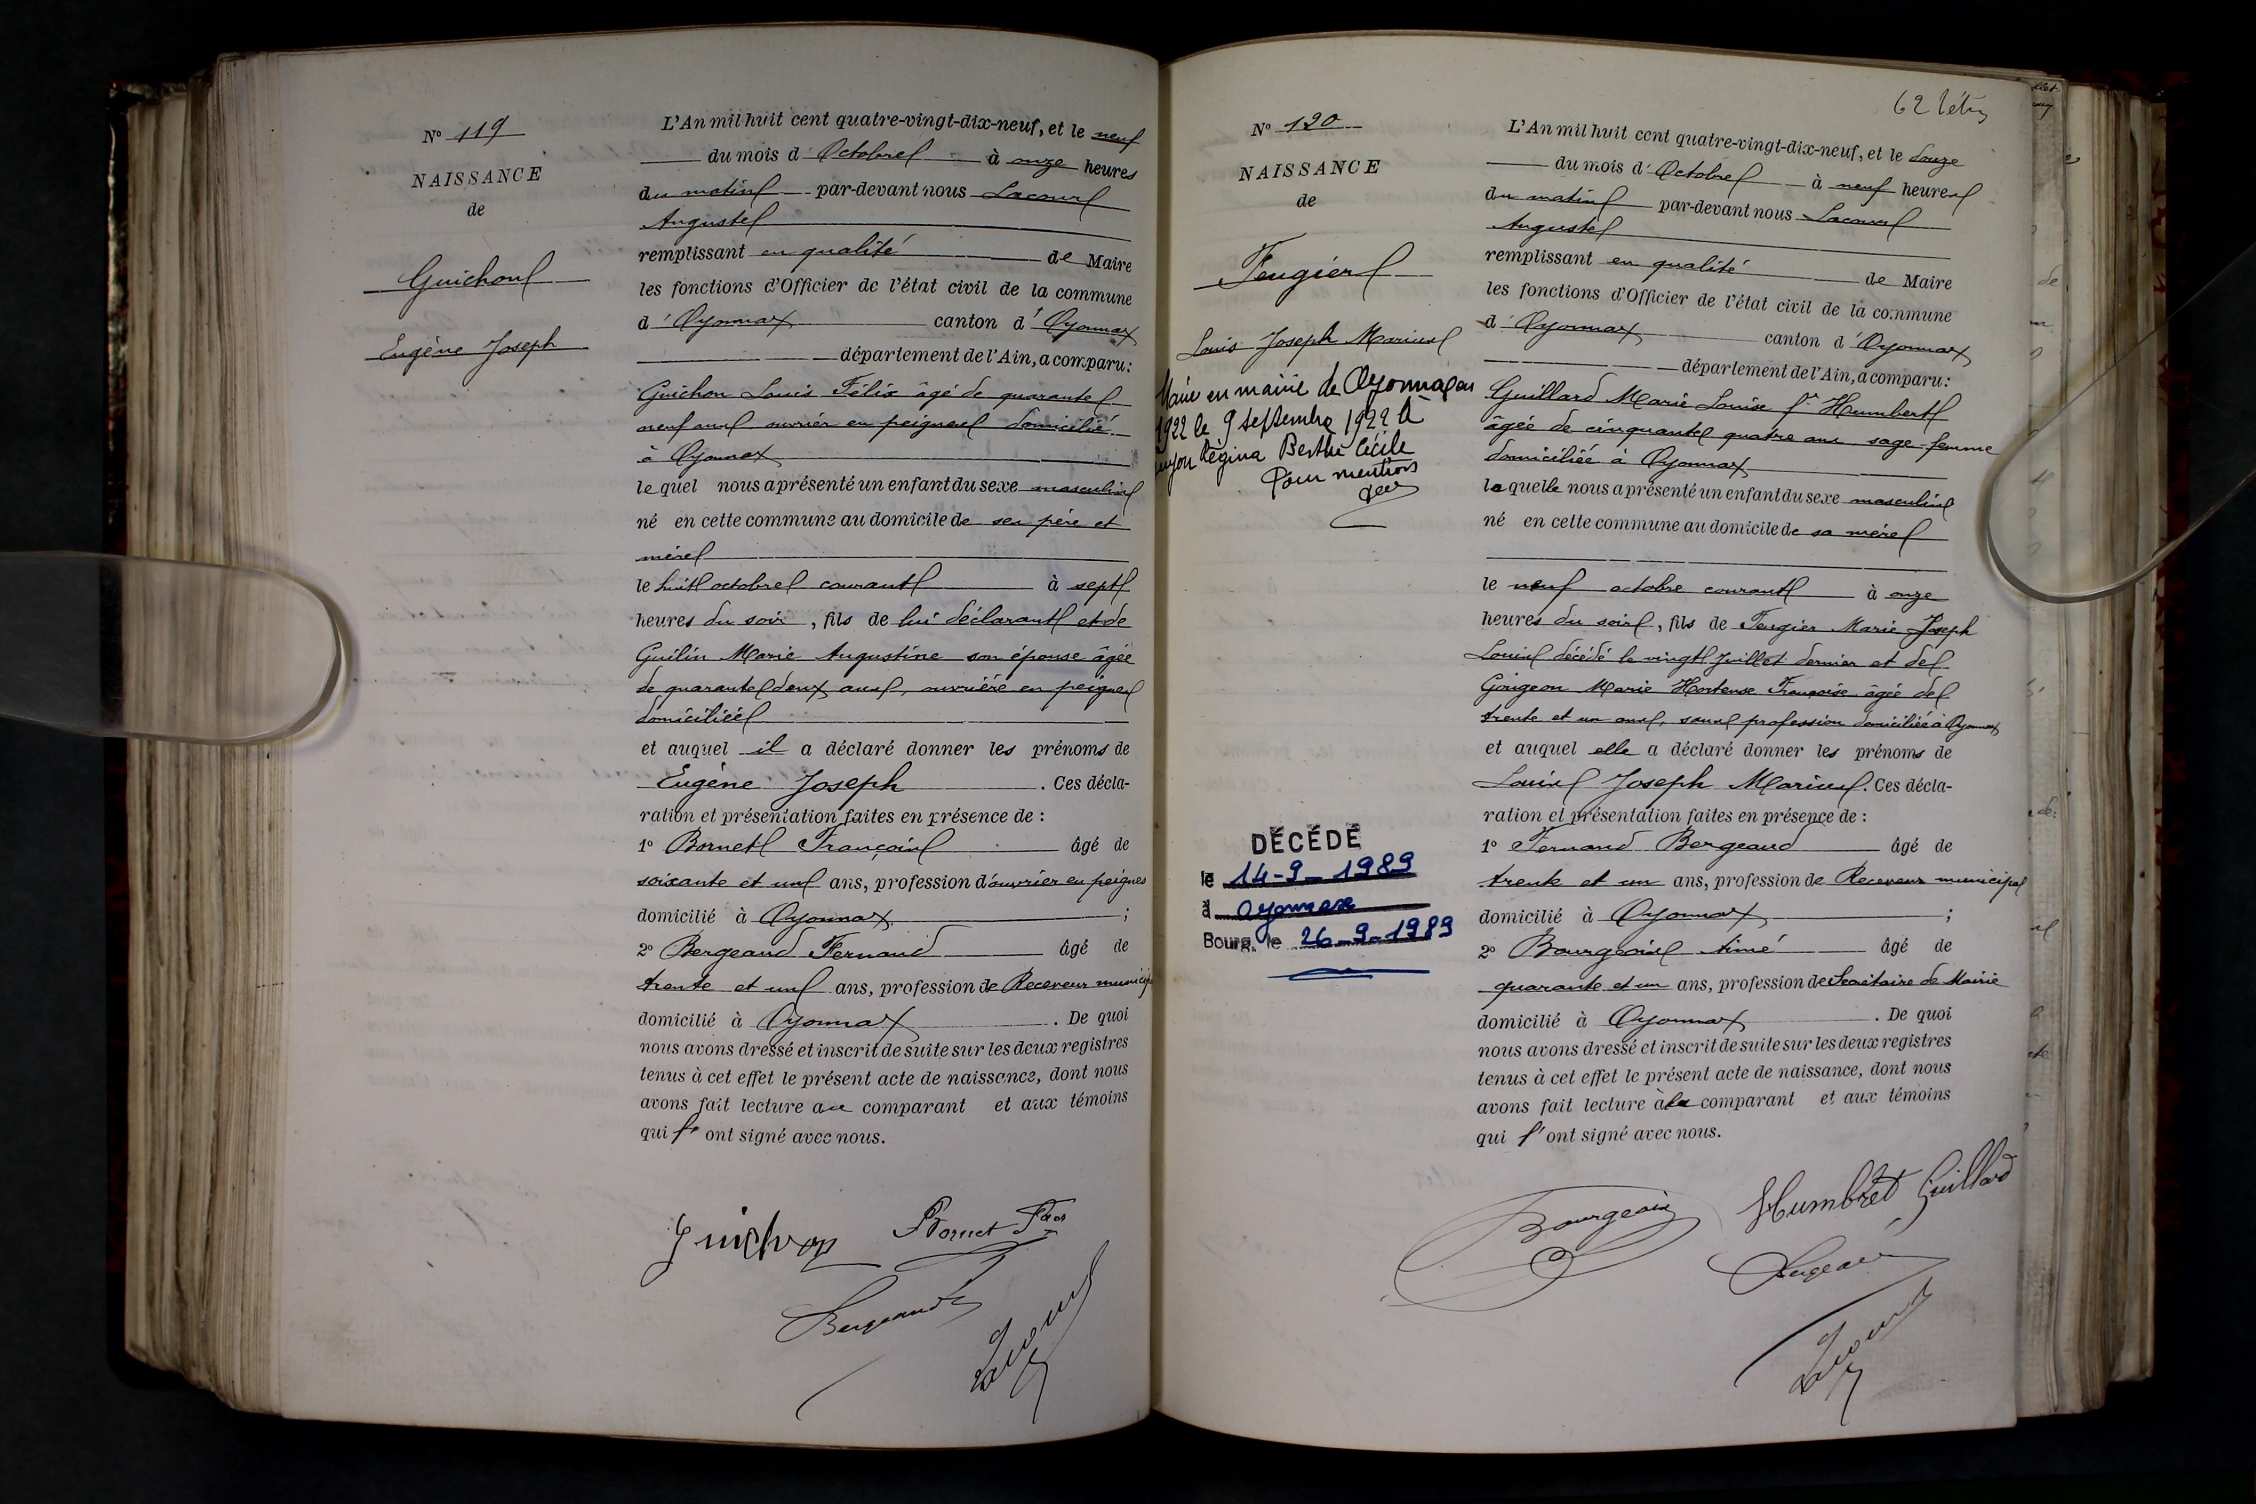 N° 119
NAISSANCE
de
Guichon
Eugène Joseph
L'An mil huit cent quatre-vingt-dix-neuf, et le neuf
du mois d'Octobre à onze heures
du matin par-devant nous Lacour
Auguste
remplissant en qualité de Maire
les fonctions d'Officier de l'état civil de la commune
d'Oyonnax canton d'Oyonnax
département de l'Ain, a comparu:
Guichon Louis Félix âgé de quarante
neuf ans ouvrier en peignes domicilié
à Oyonnax
lequel nous a présenté un enfant du sexe masculin
né en cette commune au domicile de ses père et
mère
le huit octobre courant à sept
heures du soir, fils de lui déclarant et de
Guilin Marie Augustine son épouse âgée
de quarante deux ans, ouvrière en peignes
domiciliée
et auquel il a déclaré donner les prénoms de
Eugène Joseph. Ces décla-
ration et présentation faites en présence de :
1° Bornet François âgé de
soixante et un ans, profession d'ouvrier en peignes
domicilié à Oyonnax ;
2° Bergeaud Fernand âgé de
trente et un ans, profession de Receveur municip
domicilié à Oyonnax. De quoi
nous avons dressé et inscrit de suite sur les deux registres
tenus à cet effet le présent acte de naissance, dont nous
avons fait lecture au comparant et aux témoins
qui l'ont signé avec nous.
Guichon Bornet Fçois
Bergeaud
Lacour
62
N° 120
NAISSANCE
de
Feugier
Louis Joseph Marius
Marié en mairie de Oyonnax en
1922 le 9 septembre 1922 à
Régina Berthe Cécile
Pour mention
DÉCÉDÉ
le 14-9-1989
à Oyonnax
Bourg, le 26-9-1989
L'An mil huit cent quatre-vingt-dix-neuf, et le douze
du mois d'Octobre à neuf heures
du matin par-devant nous Lacour
Auguste
remplissant en qualité de Maire
les fonctions d'Officier de l'état civil de la commune
d'Oyonnax canton d'Oyonnax
département de l'Ain, a comparu:
Guillard Marie Louise fe Humbert
âgée de cinquante quatre ans sage-femme
domiciliée à Oyonnax
laquelle nous a présenté un enfant du sexe masculin
né en cette commune au domicile de sa mère
le neuf octobre courant à onze
heures du soir, fils de Feugier Marie Joseph
Louis décédé le vingt Juillet dernier et de
Gorgeon Marie Hortense Françoise âgée de
trente et un ans, sans profession domiciliée à Oyonnax
et auquel elle a déclaré donner les prénoms de
Louis Joseph Marius. Ces décla-
ration et présentation faites en présence de :
1° Fernand Bergeaud âgé de
trente et un ans, profession de Receveur municipal
domicilié à Oyonnax ;
2° Bourgeois Aimé âgé de
quarante et un ans, profession de Secrétaire de Mairie
domicilié à Oyonnax. De quoi
nous avons dressé et inscrit de suite sur les deux registres
tenus à cet effet le présent acte de naissance, dont nous
avons fait lecture à la comparant et aux témoins
qui l'ont signé avec nous.
Bourgeois Humbert Guillard
Bergeaud
Lacour